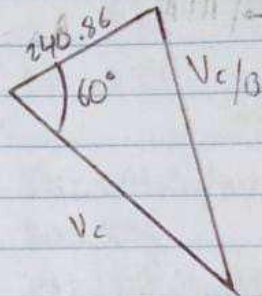 240.86
60°
Vc/B
Vc